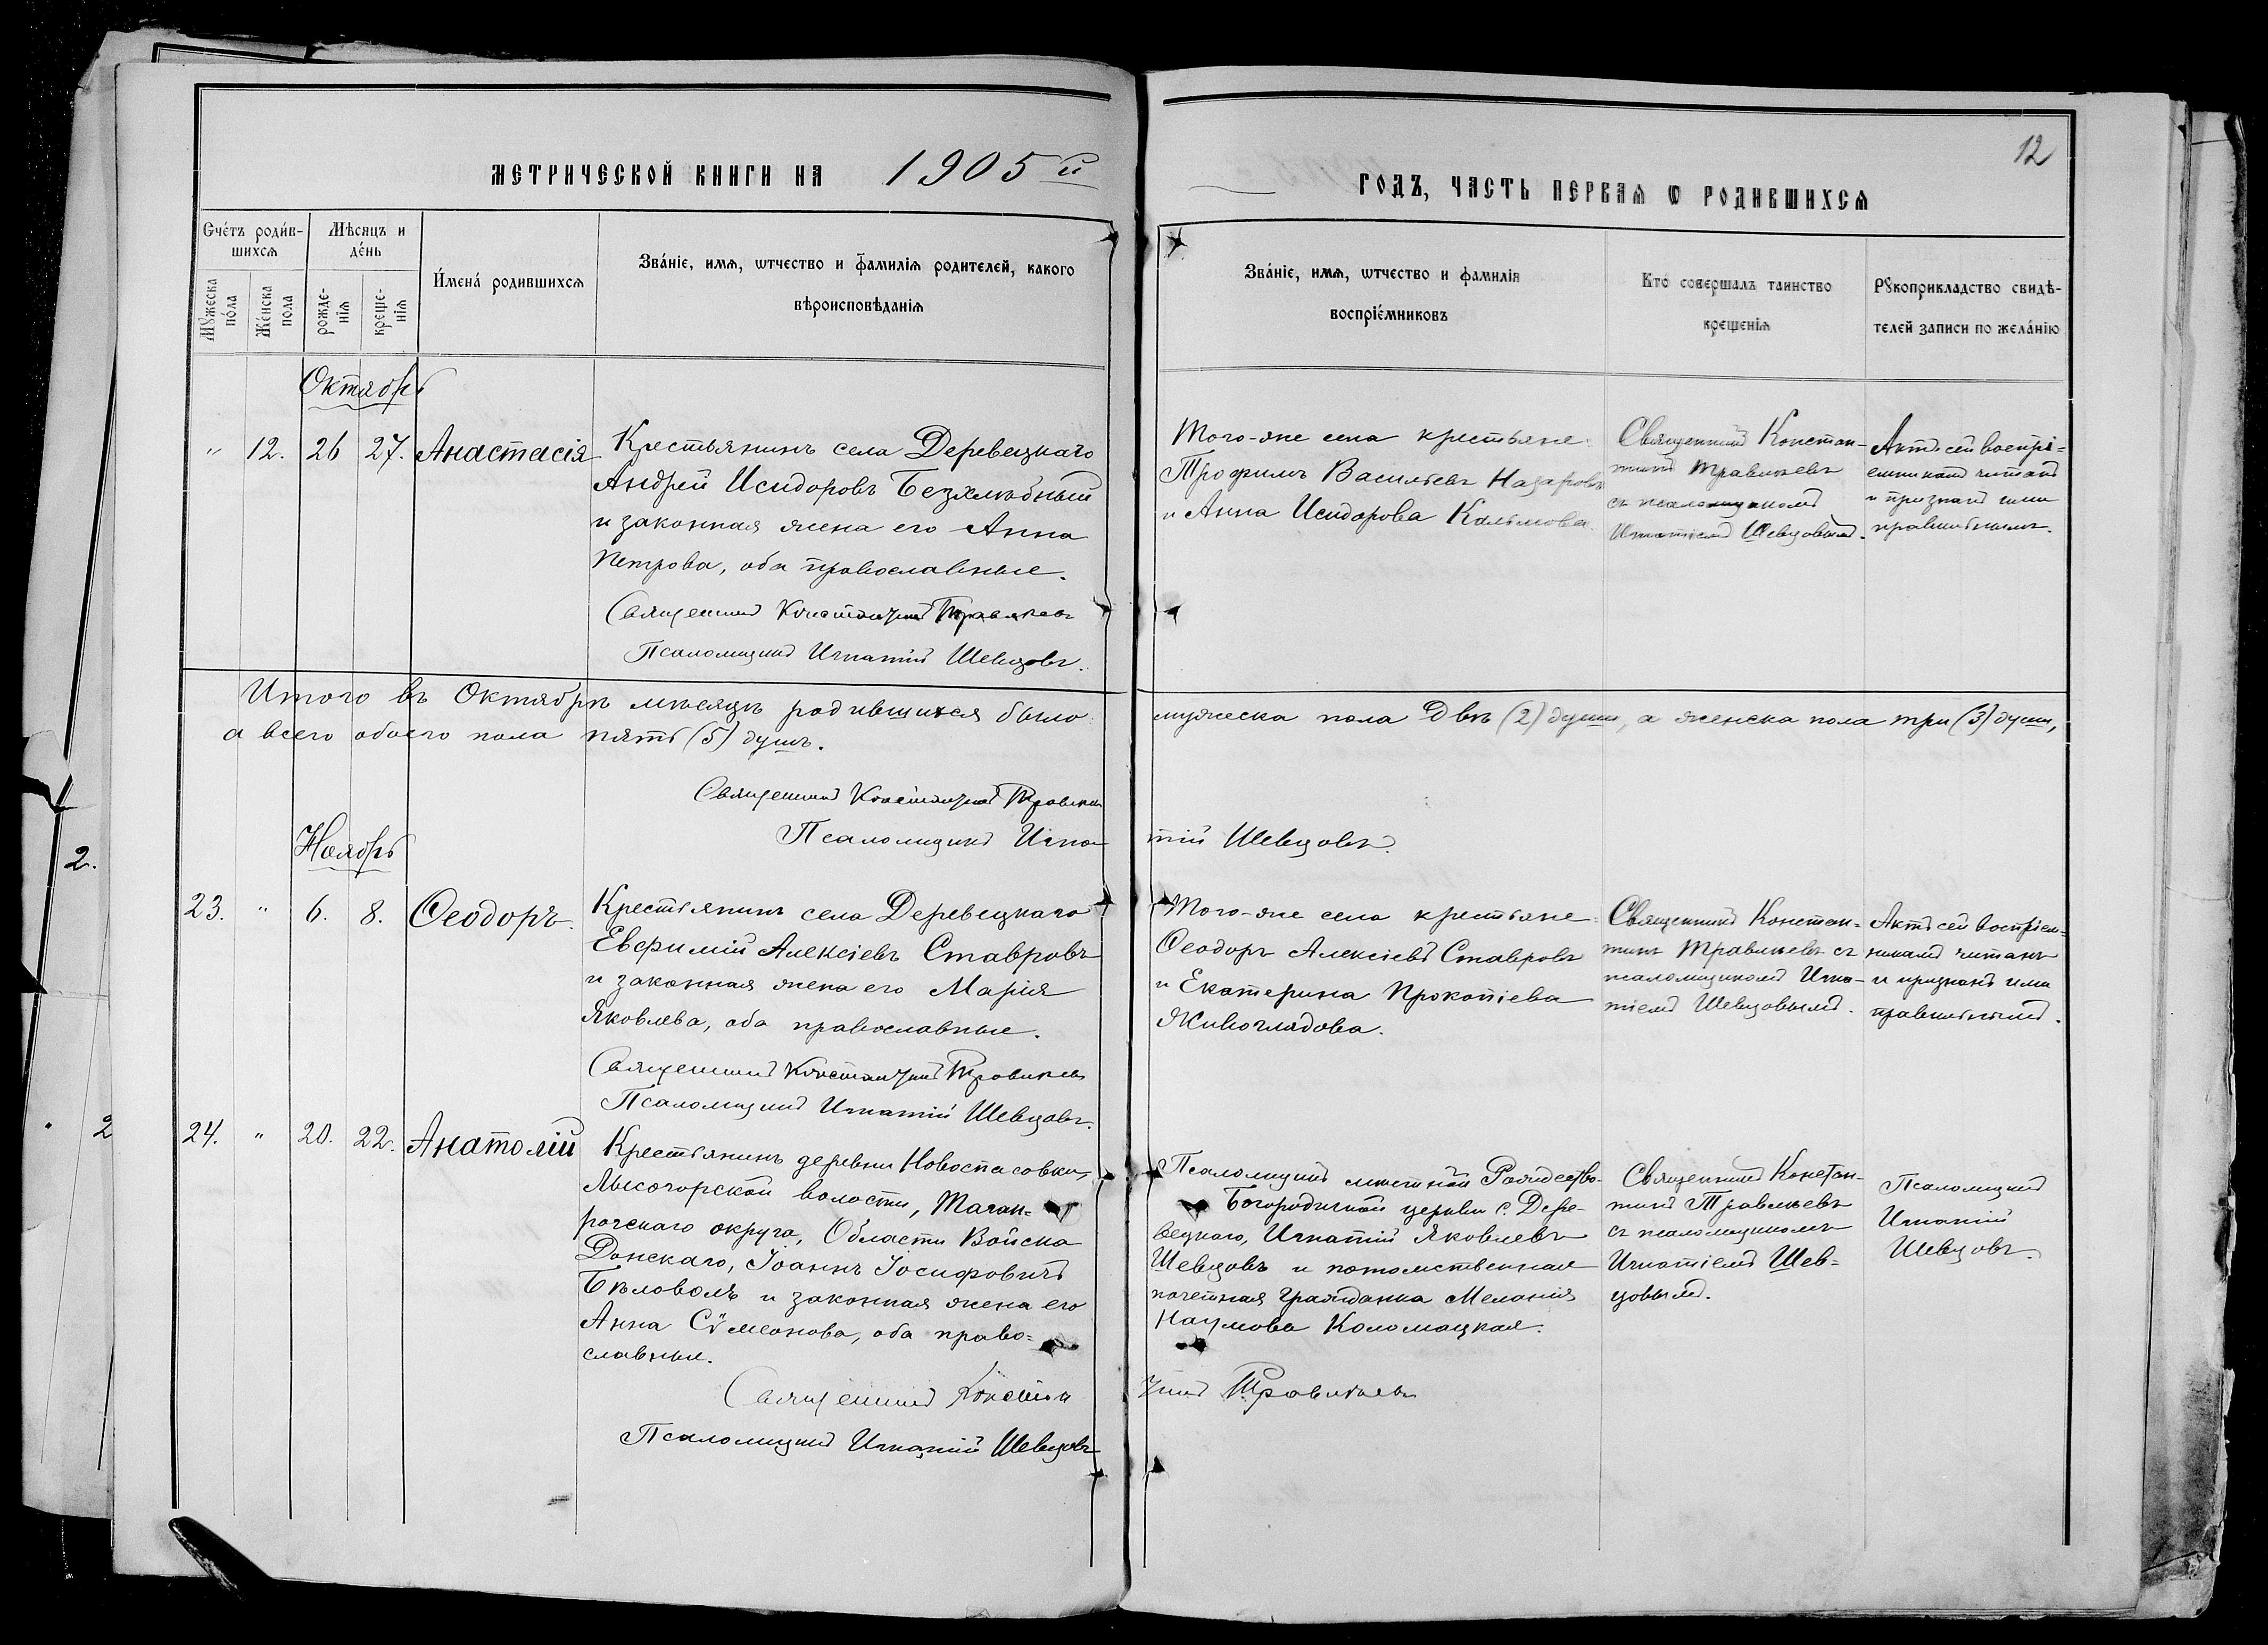 МЕТРИЧЕСКОЙ КНИГИ НА 1905й
ГОДЪ, ЧАСТЬ ПЕРВАЯ Ѡ РОДИВШИХСЯ
12
Счетъ родив-
шихся
Мѣсяцъ и
день
Мужеска
пола
Женска
пола
рожде-
нія
креще-
нія
Имена родившихся
Званіе, имя, ѿчество и фамилія родителей, какого
вѣроисповѣданія
Званіе, имя, ѿчество и фамилія
воспріемниковъ
Кто совершалъ таинство
крещенія
Рукоприкладство свидѣ-
телей записи по желанію
Октябрь
" 12. 26 27. Анастасія
Крестьянинъ села Деревецкаго
Андрей Исидоровъ Безхлѣбный
и законная жена его Анна
Петрова, оба православные.
Священникъ Константинъ Травлѣевъ
Псаломщикъ Игнатій Шевцовъ.
Того-же села крестьяне
Трофимъ Васильевъ Назаровъ
и Анна Исидорова
Священникъ Констан-
тинъ Травлѣевъ
съ псаломщикомъ
Игнатіемъ Шевцовымъ.
Актъ сей воспрі=
емникамъ читанъ
и признанъ ими
правильнымъ.
Итого въ Октябрѣ мѣсяцѣ родившихся было мужеска пола двѣ (2) души, а женска пола три (3) души,
а всего обоего пола пять (5) душъ.
Священникъ Константинъ Травлѣевъ
Псаломщикъ Игна-
тій Шевцовъ.
Ноябрь
23. " 6. 8. Ѳеодоръ.
Крестьянинъ села Деревецкаго
Евфимій Алексіевъ Ставровъ
и законная жена его Марія
Яковлева, оба православные.
Священникъ Константинъ Травлѣевъ
Псаломщикъ Игнатій Шевцовъ.
Того-же села крестьяне
Ѳеодоръ Алексіевъ Ставровъ
и Екатерина Прокопіева
Живоглядова.
Священникъ Констан=
тинъ Травлѣевъ съ
псаломщикомъ Игна-
тіемъ Шевцовымъ.
Актъ сей воспріем=
никамъ читанъ
и признанъ ими
правильнымъ.
24. " 20. 22. Анатолій
Крестьянинъ деревни Новоспасовки,
Лысогорской волости, Таган=
рогскаго округа, Области Войска
Донскаго, Іоаннъ Іосифовичъ
Бѣловолъ и законная жена его
Анна Сѵмеонова, оба право=
славные.
Священникъ Констан
тинъ Травлѣевъ
Псаломщикъ Игнатій Шевцовъ
Псаломщикъ мѣстной Рождество-
Богородичной церкви с. Дере-
вецкаго, Игнатій Яковлевъ
Шевцовъ и потомственная
почетная гражданка Меланія
Наумова Коломацкая.
Священникъ Констан-
тинъ Травлѣевъ
съ псаломщикомъ
Игнатіемъ Шев=
цовымъ.
Псаломщикъ
Игнатій
Шевцовъ.
2.
2